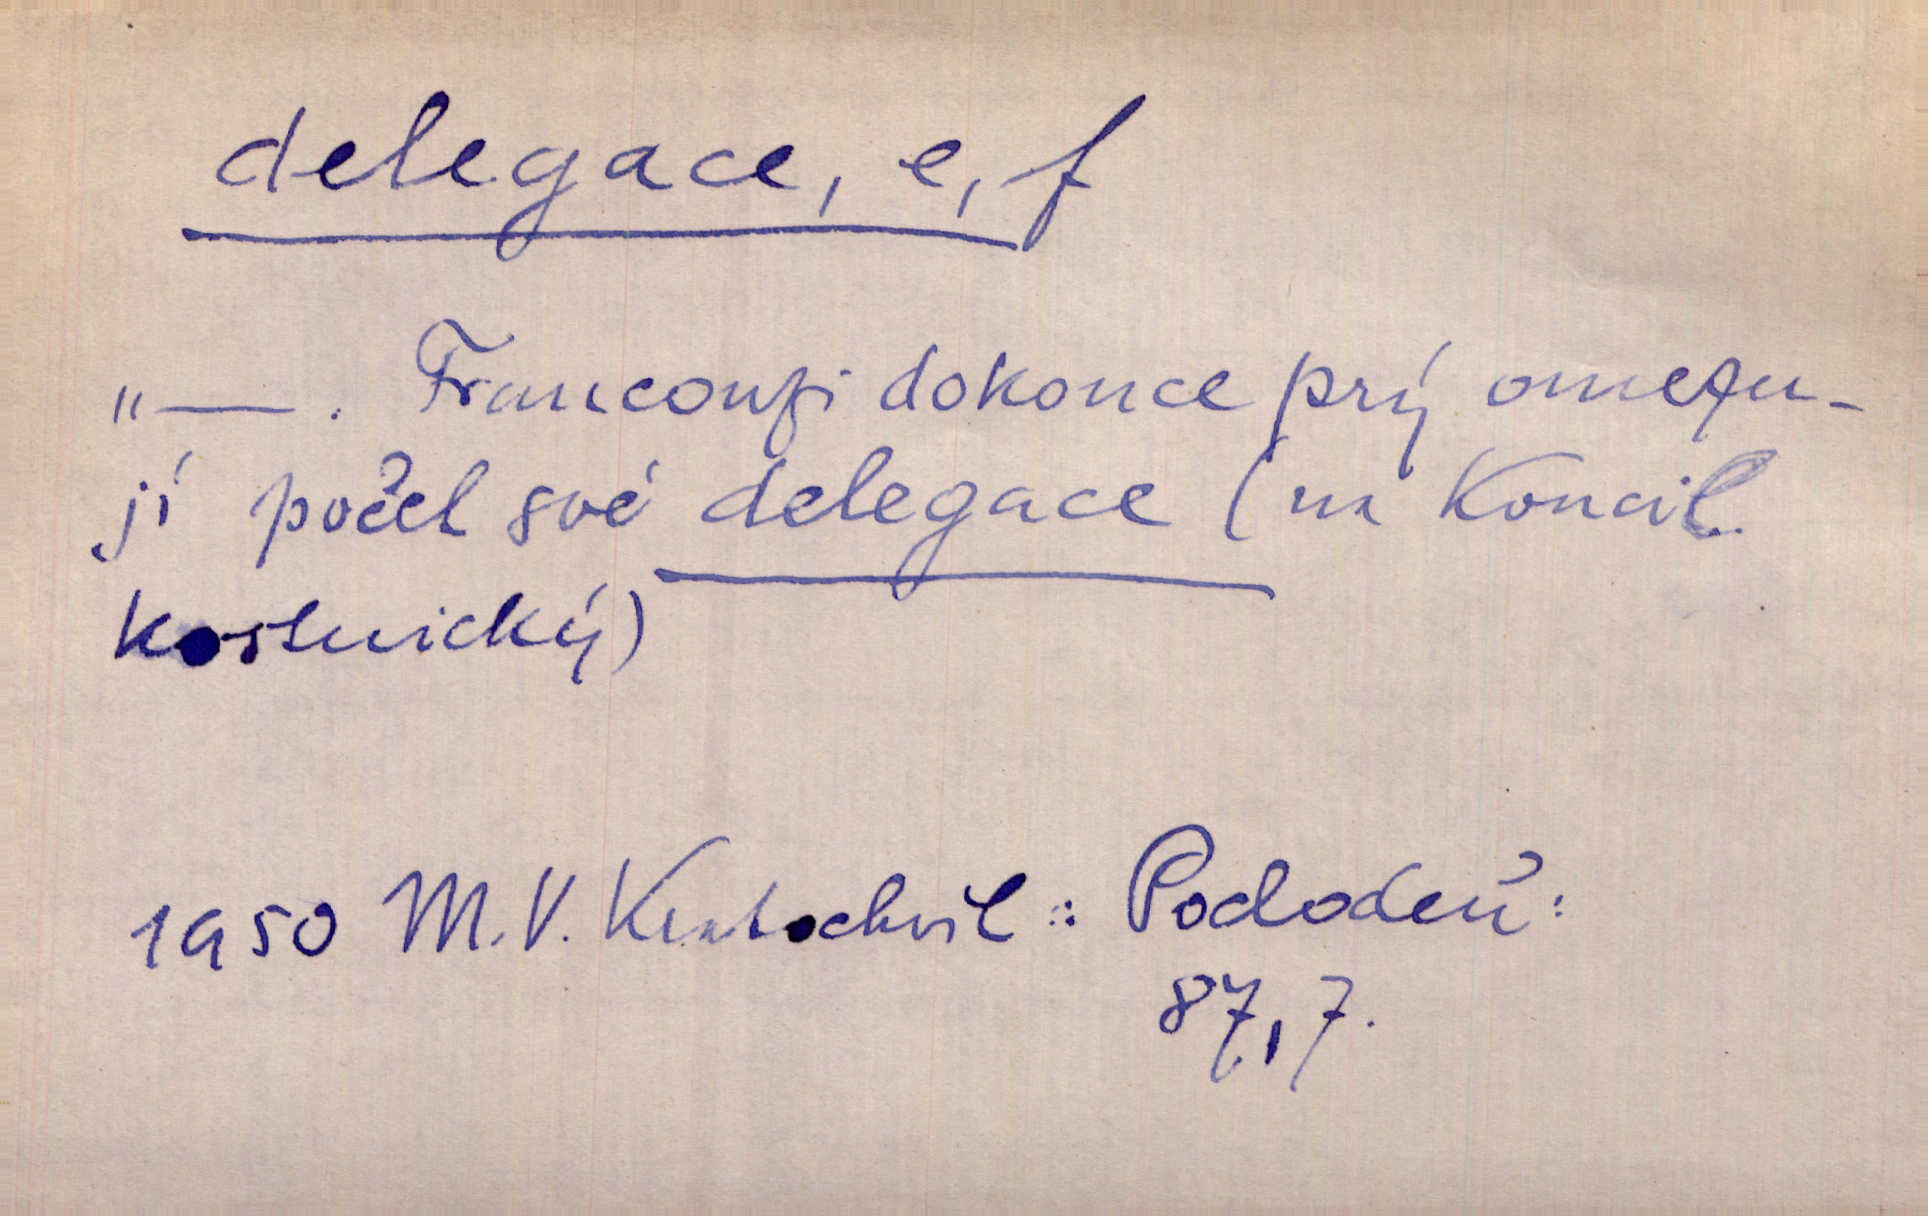 delegace, e, f
„—. Francouzi dokonce prý omezu-
jí počet své delegace (na Koncil
kostnický)
1950 M.V. Kratochvíl: Pochodeň:
87,7.